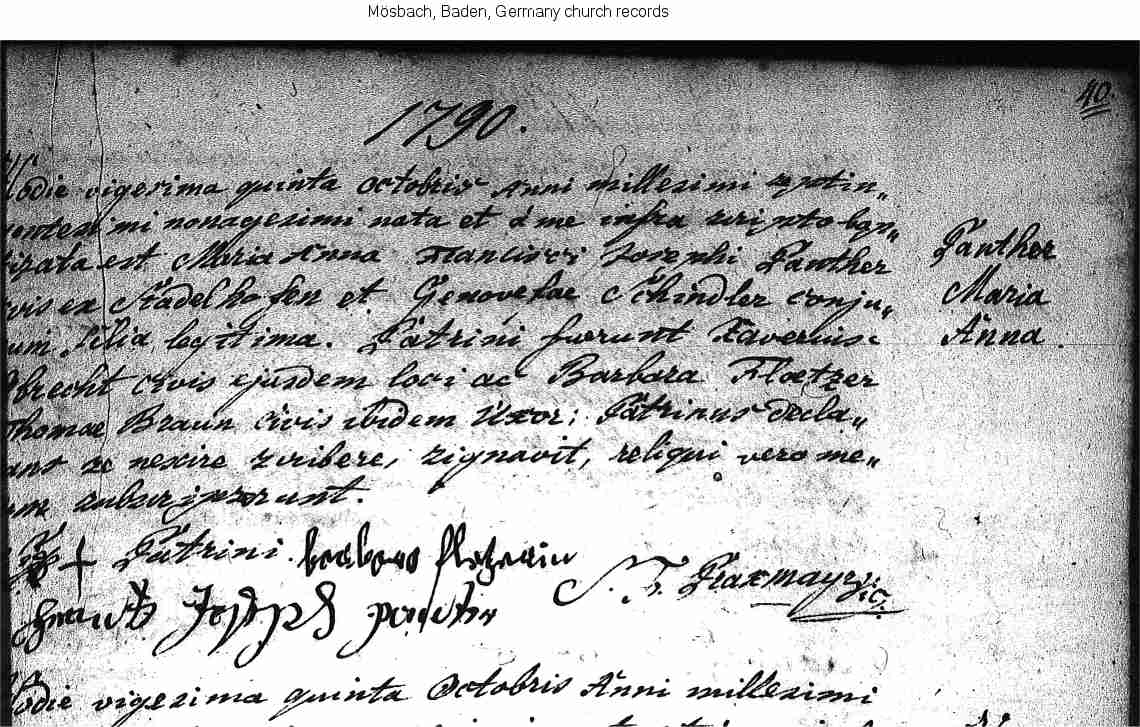 Mösbach, Baden, Germany church records
40
1790.
Hodie vigesima quinta Octobris Anni millesimi septin„
gentesimi nonagesimi nata et à me infra scripto bap„
tizata est Maria Anna Francisci Josephi Panther
civis ex Stadelhofen et Genovefae Schindler conju„
gum filia legitima. Patrini fuerunt Xaverius
Obrecht civis ejusdem loci ac Barbara Floetzer
Thomae Braun civis ibidem Uxor; Patrinus decla„
rans se nescire scribere, signavit, reliqui vero me„
cum subscripserunt.
Panther
Maria
Anna
+ Patrini
Frantz Joseph
Hodie vigesima quinta Octobris Anni millesimi